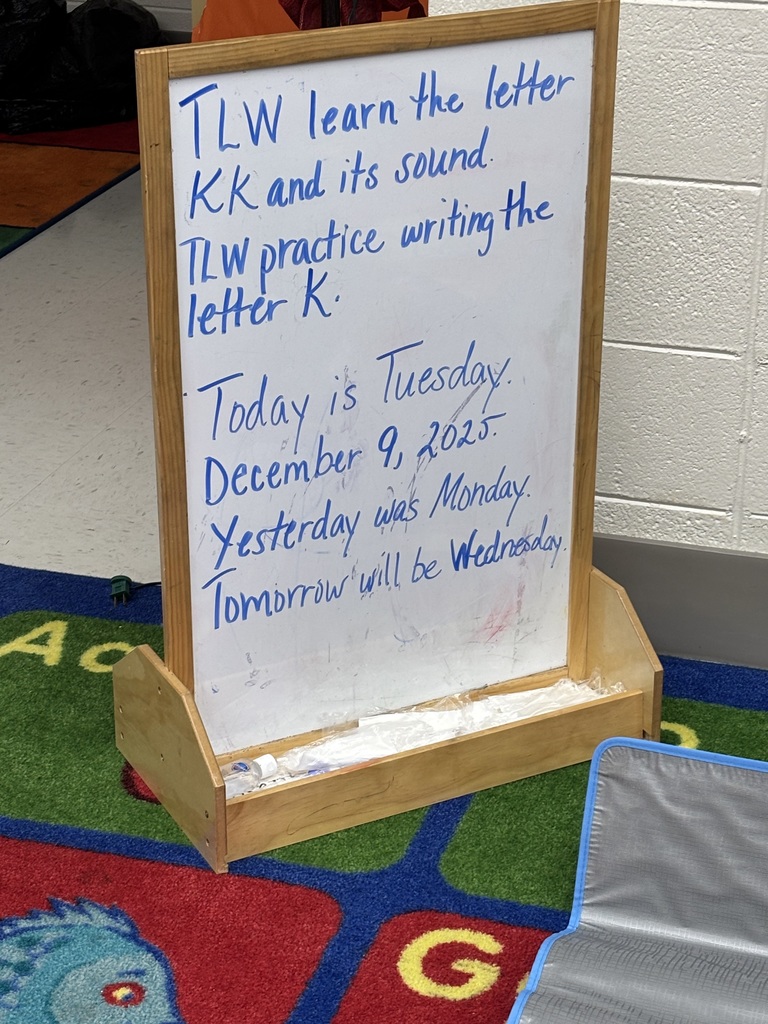 TLW learn the letter
Kk and its sound.
TLW practice writing the
letter K.
Today is Tuesday.
December 9, 2025.
Yesterday was Monday.
Tomorrow will be Wednesday.
Aa
G